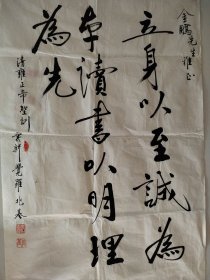 金鵬先生雅正
立身以至誠為
本讀書以明理
為先
清雍正帝聖訓
覺羅兆春